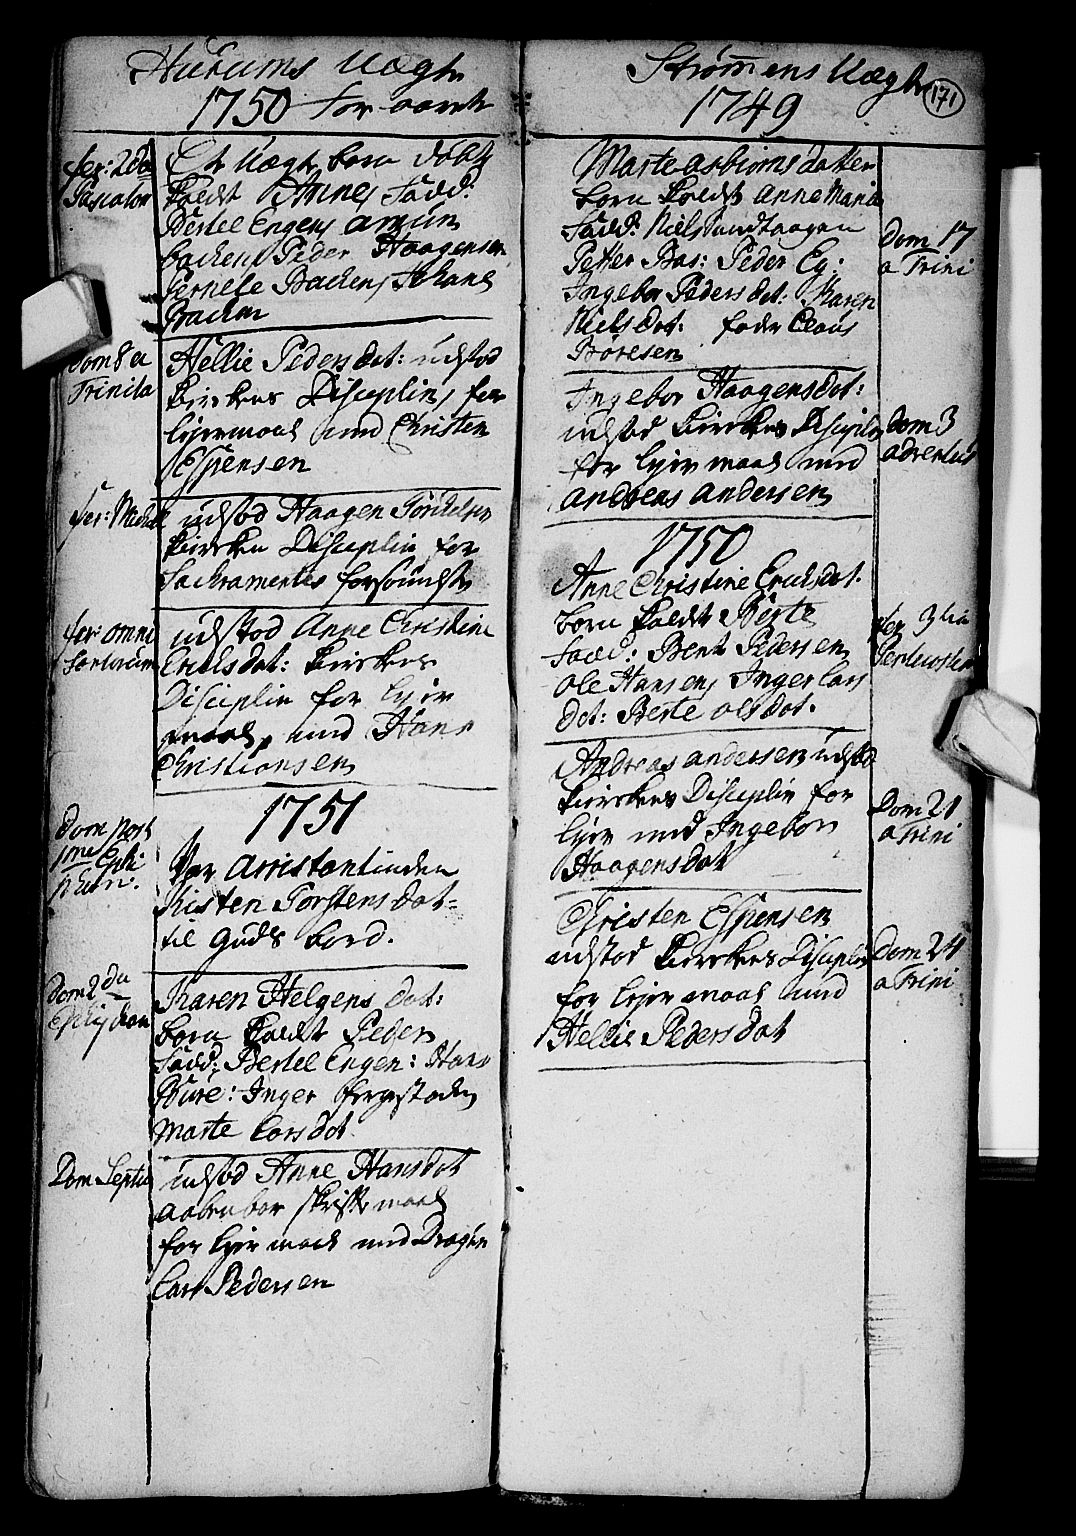 Hurums Uægte
1750 for aaret
fer: 2da
Pascatos
Et Uægte barn døbt
kaldt Amnes fadd:
Bertel Engens Amun
backen Peder Haagensen
Pernele Backens Johans
Backen
Dom 8 a
Trinita
Hellie Pedersdat: udstod
kirckens Disciplin for
leyermaal med Christen
Espensen
fer: Michel
udstod Haagen
kirckens Disciplin for
Sackramentes forsømmelse
fer omni
Santorum
udstod Anne Christine
Ericksdat: kirckens
Disciplin for leyer
maal med Hans
Christiansen
1751
Dom post
1me Eph:
phan:
Var Arrestantinden
Kisten Torstensdat=
til Guds bord.
Dom 2da
Ephiphan
Karen Helgens dat:
barn kaldt Peder
fadd: Bertel Engen: Hans
Bure: Inger fergestaden
Marte Larsdat
Dom Septu
udstod Anne Hansdat
aabenbar skriftemaal
for leyermaal med Dragon
Lars Pedersen
Strømmens Uægte
1749
171
Marte Asbiørnsdatter
barn kaldt Anne Maria
fadd: Niels Sundhaagen
Petter Bas: Peder Eg:
Ingebor Pedersdat: Karen
Nielsdat: fader Claus
Børesen
Dom 17
a Trini
Ingebor Haagensdat:
udstod kirckens Disciplin
for leyermaal med
Andreas Andersen
Dom 3
advertus
1750
Anne Christine Ericksdat.
barn kaldt Berte
fadd: Bent Pedersen
Ole Hansens Inger Lars
dat: Berte Olsdat.
fer 3tia
Pentecoste
Andreas Andersen udstod
kirckens Disciplin for
leyer med Ingebor
Haagensdat
Dom 21
a Trini
Christen Espensen
udstod kirckens Disciplin
for leyermaal med
Hellie Pedersdat
Dom 24
a Trini